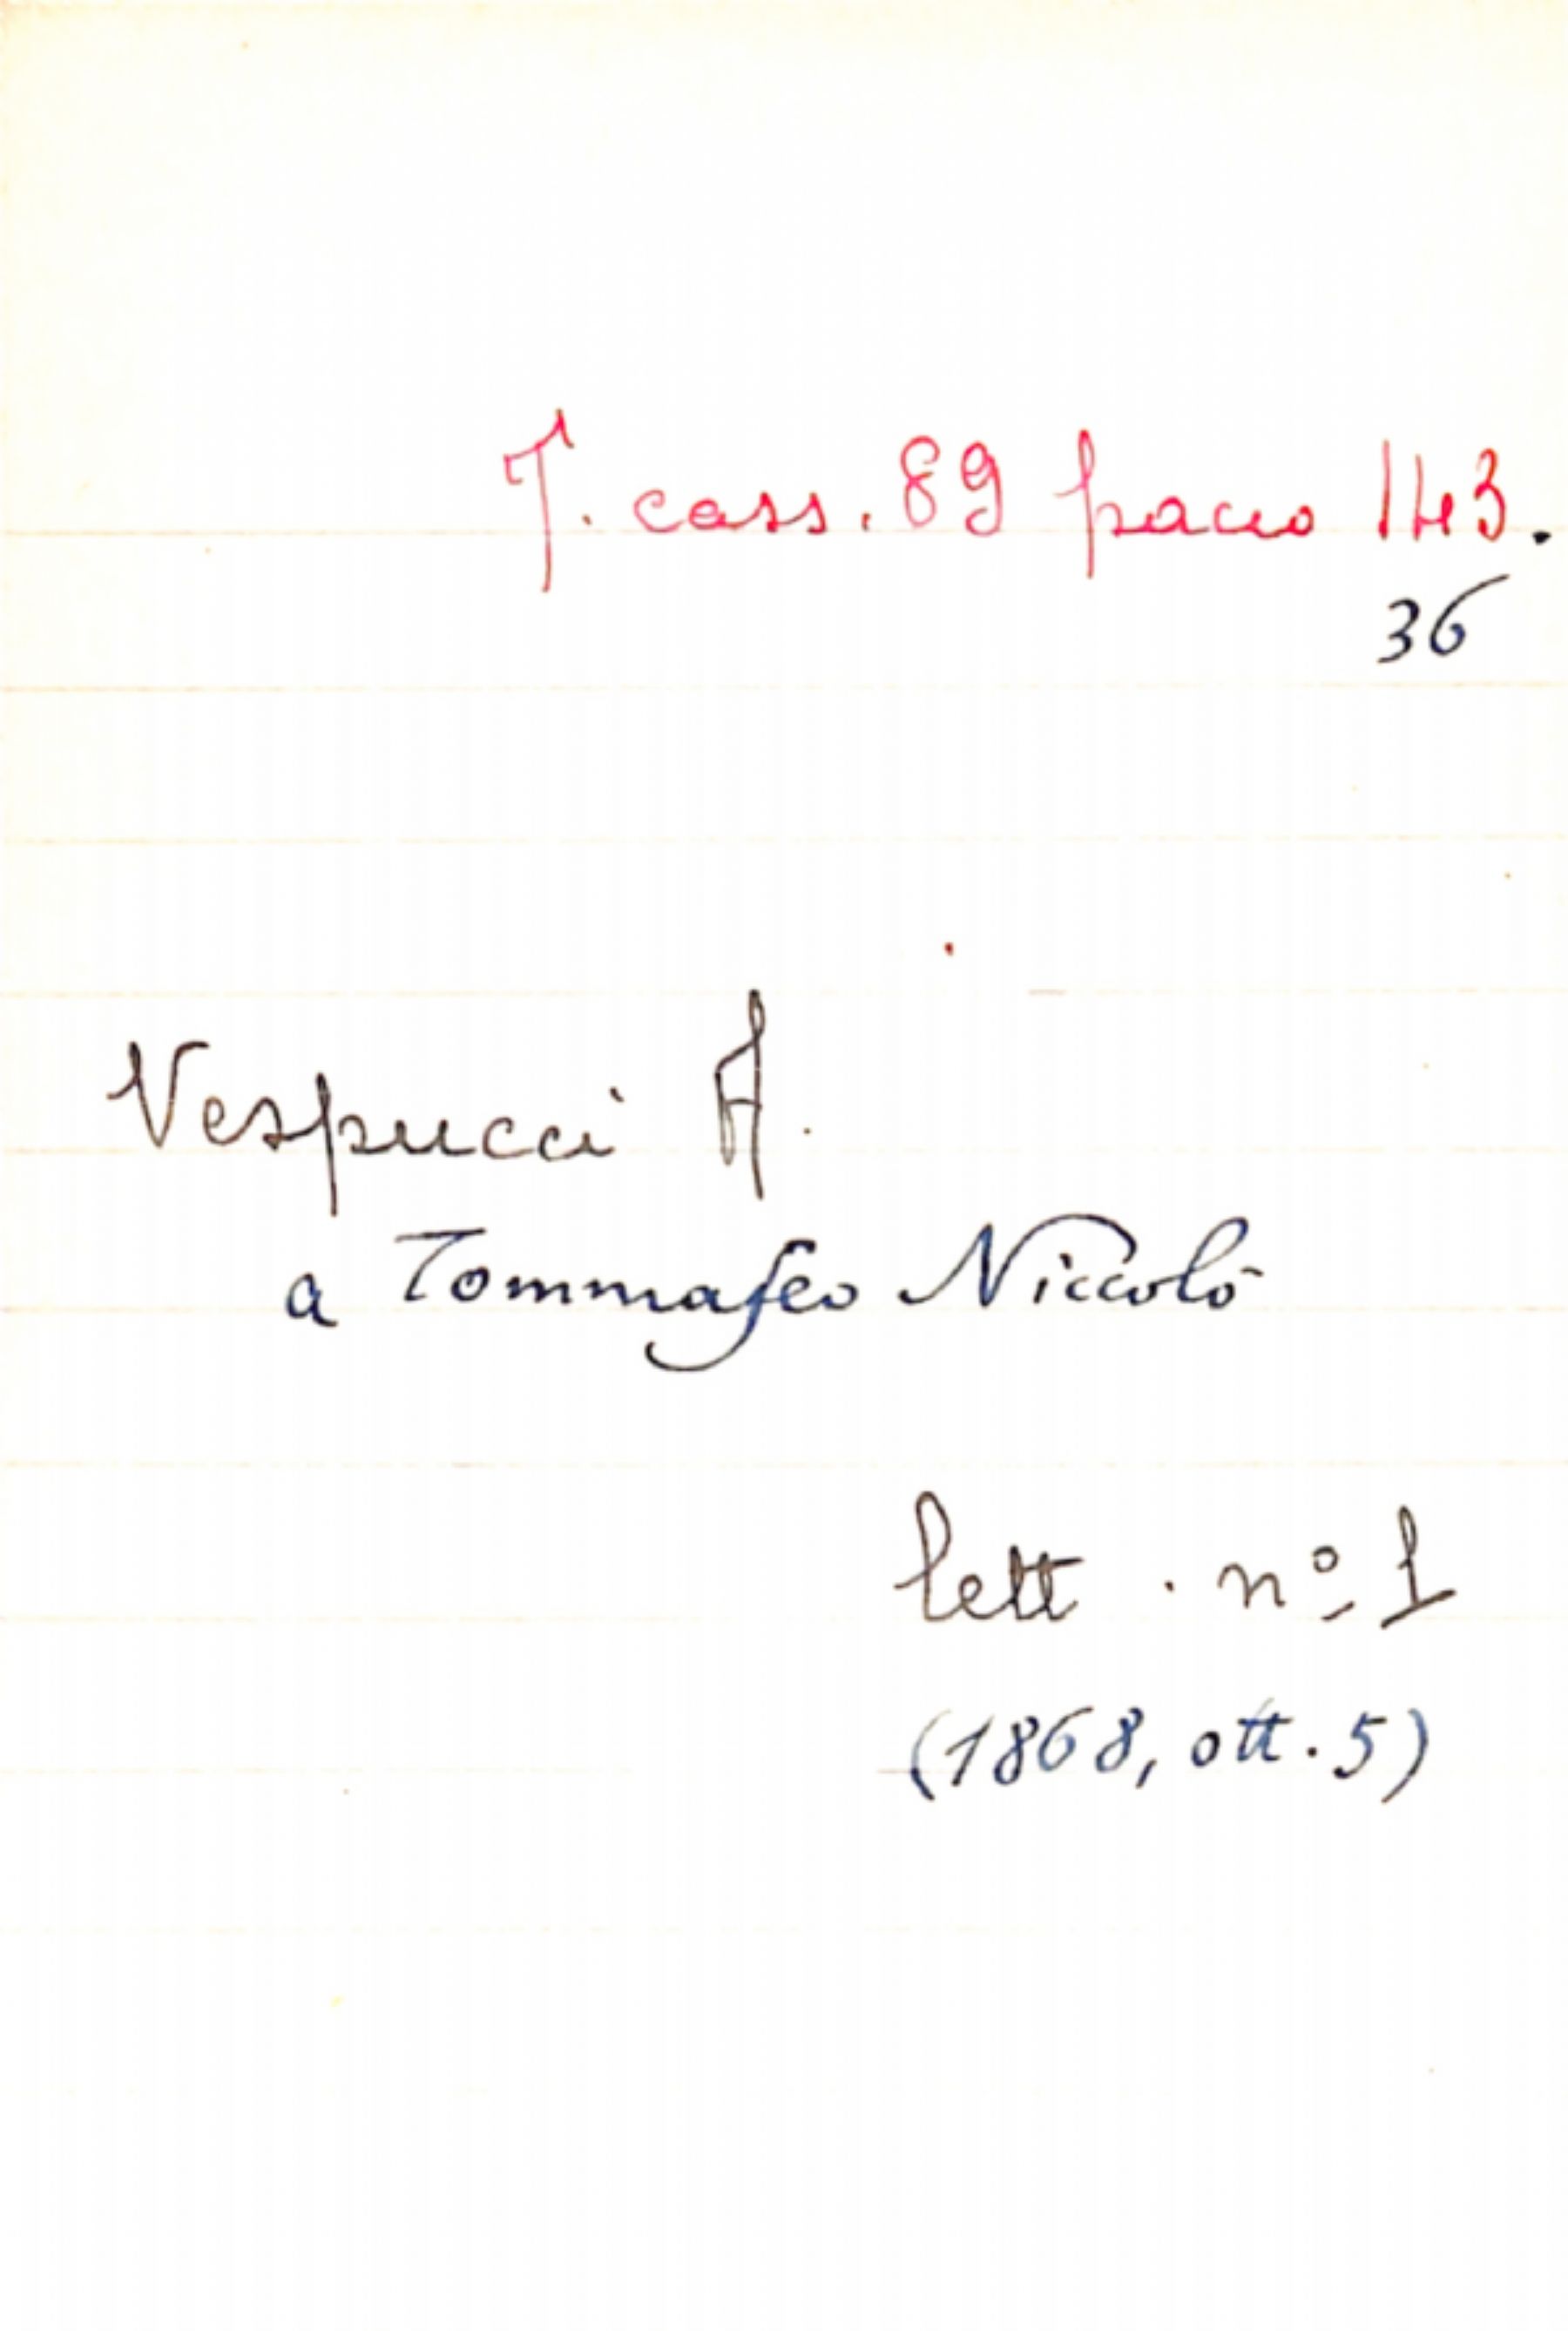 T. cass. 89 pacco 143.
36
Vespucci A.
a Tommaseo Niccolò
lett. nº 1
(1868, ott. 5)